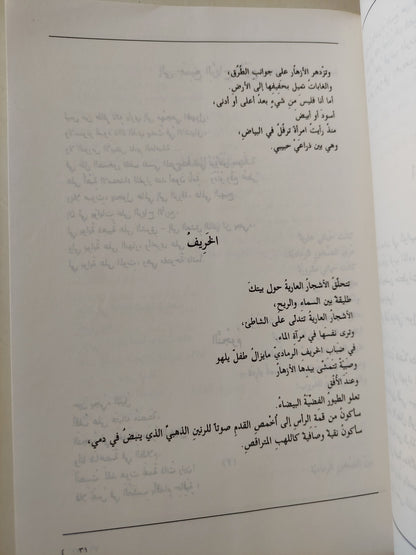 وتزدهر الأزهار على جوانب الطُرُق،
والغابات تميل بحفيفها إلى الأرض.
أما أنا فليس من شيءٍ بعدُ أعلى أو أدنى،
أسودَ أو أبيضَ
منذ رأيتُ امرأة ترفّل في البياض،
وهي بين ذراعَيْ حبيبي.
الخَرِيفُ
تتحلّق الأشجار العارية حول بيتكَ
طليقةً بين السماء والريح،
الأشجار العارية تتدلى على الشاطئ،
وترى نفسَها في مرآة الماء.
في ضباب الخريف الرماديّ مايزالُ طفلٌ يلهو
وصبيّة تتمشّى بيدها الأزهارُ
وعند الأُفق
تعلو الطيور الفضيّة البيضاءُ.
سأكون من قمة الرأس إلى أخْمص القدمِ صوتاً للرنين الذهبيّ الذي ينبضُ في دمي،
سأكون نقية وصَافية كاللهب المتراقص.
٣١